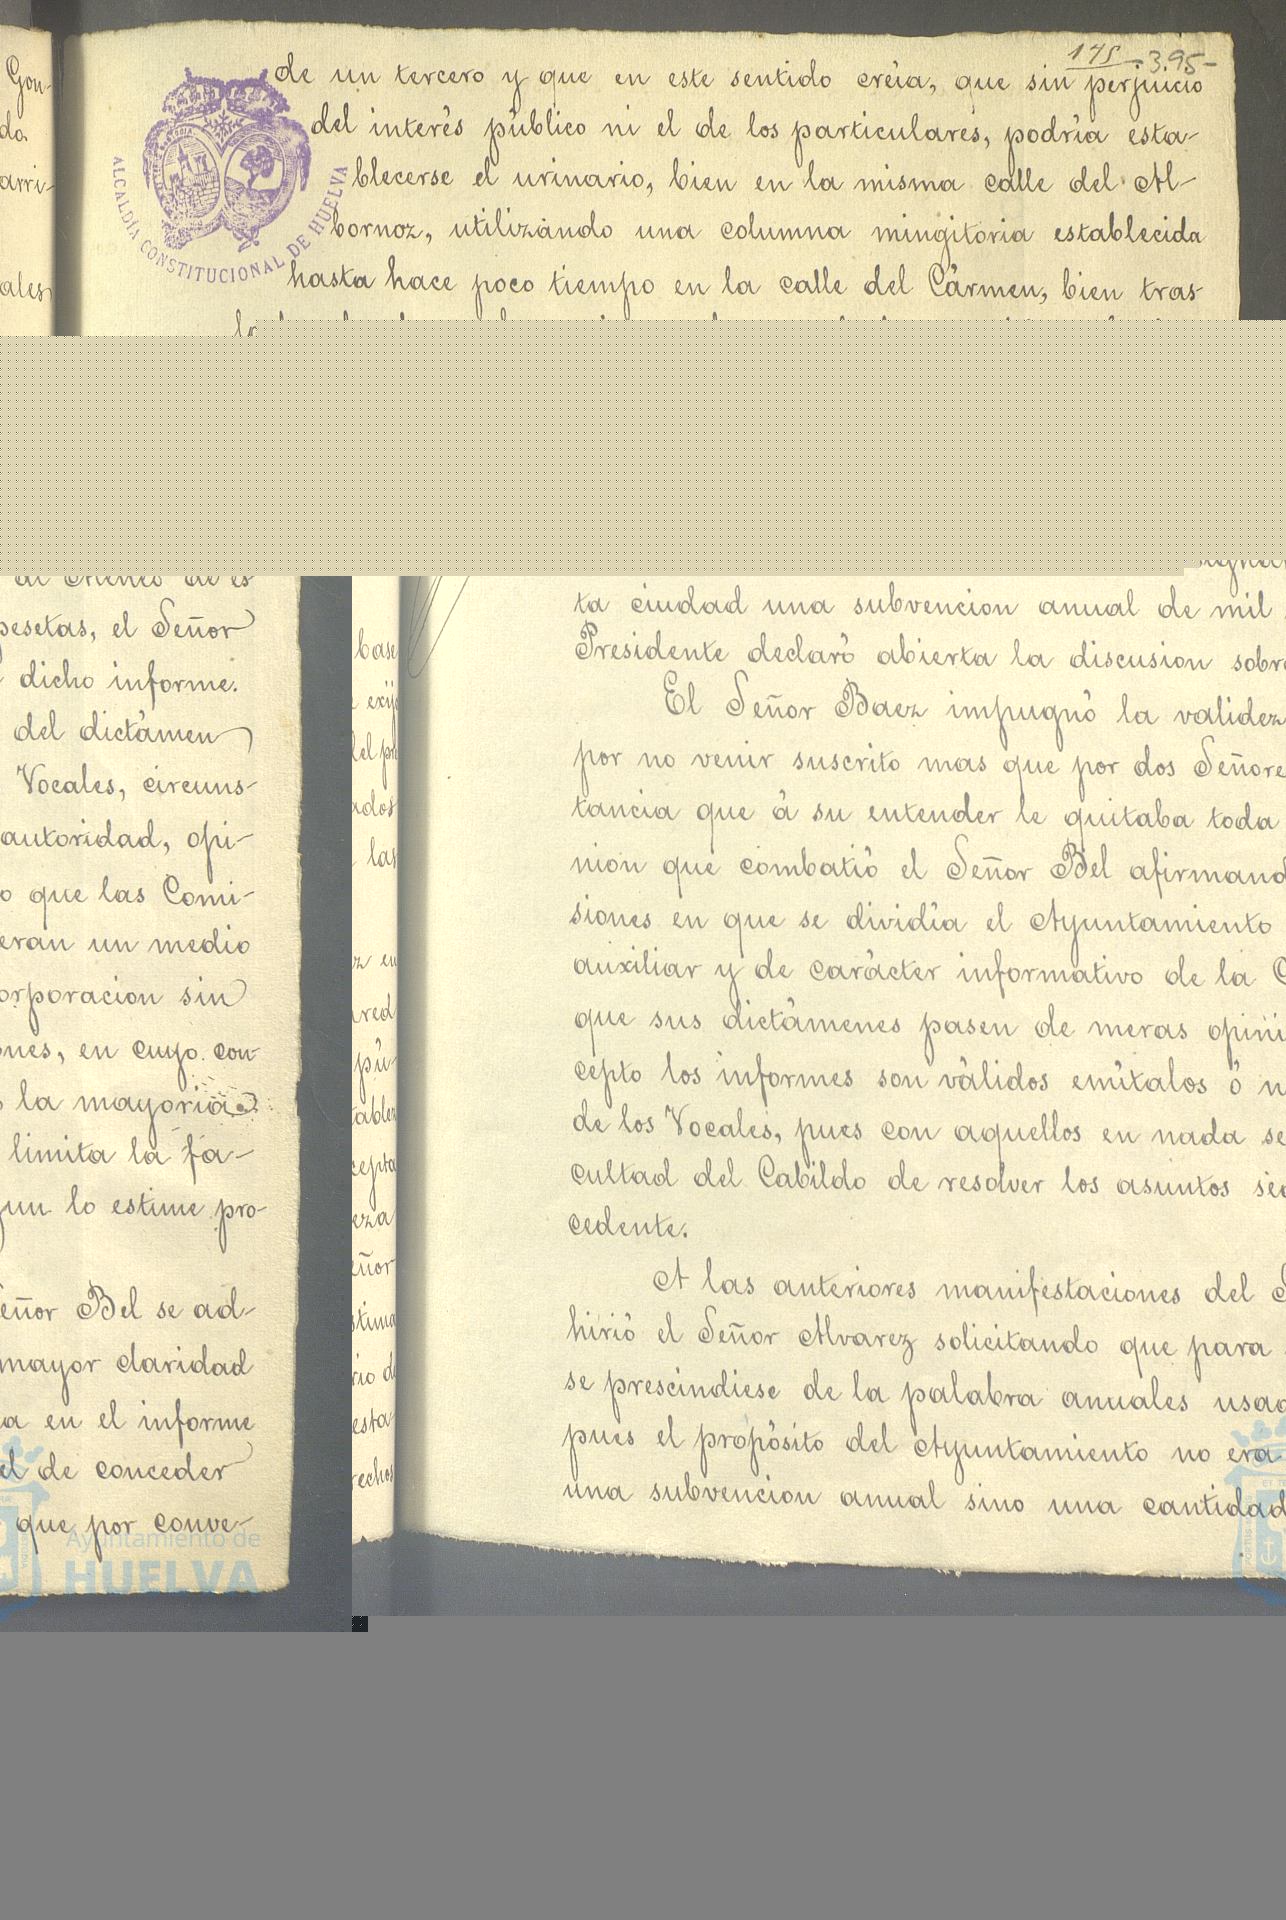 175 .3.95-
ALCALDÍA CONSTITUCIONAL DE HUELVA
de un tercero y que en este sentido creía, que sin perjuicio
del interés público ni el de los particulares, podría esta-
blecerse el urinario, bien en la misma calle del Al-
bornoz, utilizando una columna mingitoria establecida
hasta hace poco tiempo en la calle del Cármen, bien tras
ta ciudad una subvencion anual de mil pesetas, el Señor
Presidente declaró abierta la discusion sobre dicho informe.
El Señor Baez impugnó la validez del dictámen
por no venir suscrito mas que por dos Señores Vocales, circuns-
tancia que á su entender le quitaba toda autoridad, opi-
nion que combatió el Señor Bel afirmando que las Comi-
siones en que se dividía el Ayuntamiento eran un medio
auxiliar y de carácter informativo de la Corporacion sin
que sus dictámenes pasen de meras opiniones, en cuyo con-
cepto los informes son válidos emítalos ó no la mayoría
de los Vocales, pues con aquellos en nada se limita la fa-
cultad del Cabildo de resolver los asuntos segun lo estime pro-
cedente.
A las anteriores manifestaciones del Señor Bel se ad-
hirió el Señor Alvarez solicitando que para mayor claridad
se prescindiese de la palabra anuales usada en el informe
pues el propósito del Ayuntamiento no era el de conceder
una subvencion anual sino una cantidad que por conve-
Ayuntamiento de
HUELVA